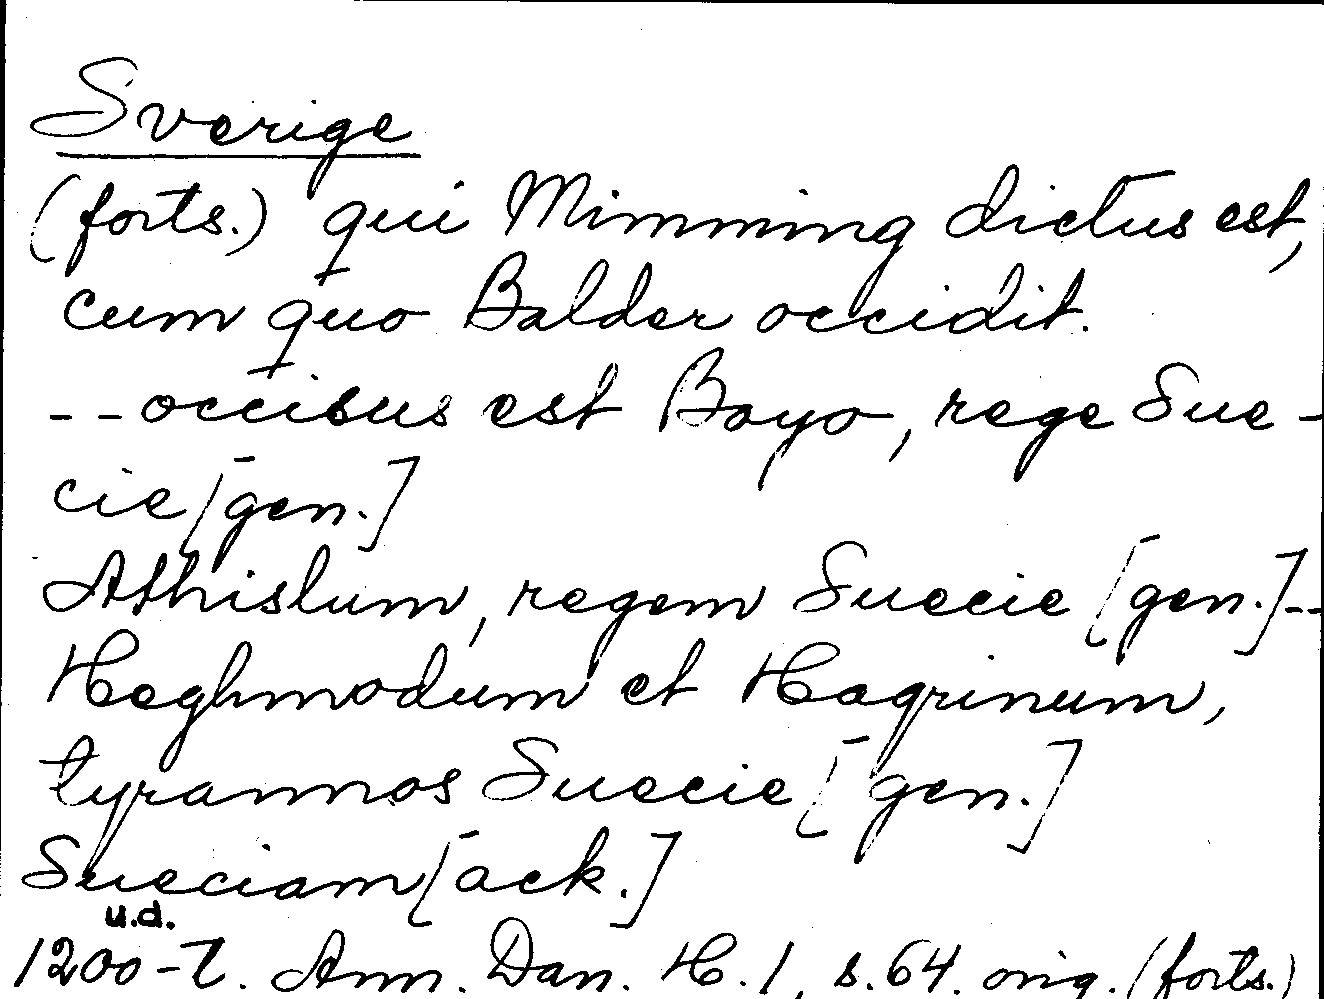 Sverige
(forts.) qui Mimming dictus est,
cum quo Balder occidit.
--occisus est Boyo, rege Sue-
cie [gen.]
Athislum, regem Suecie [gen.]--
Høghmodum et Høgrinum,
tyrannos Suecie [gen.]
Sueciam [ack.]
u.d.
1200-t. Ann. Dan. H. 1, s. 64. orig. (forts.)